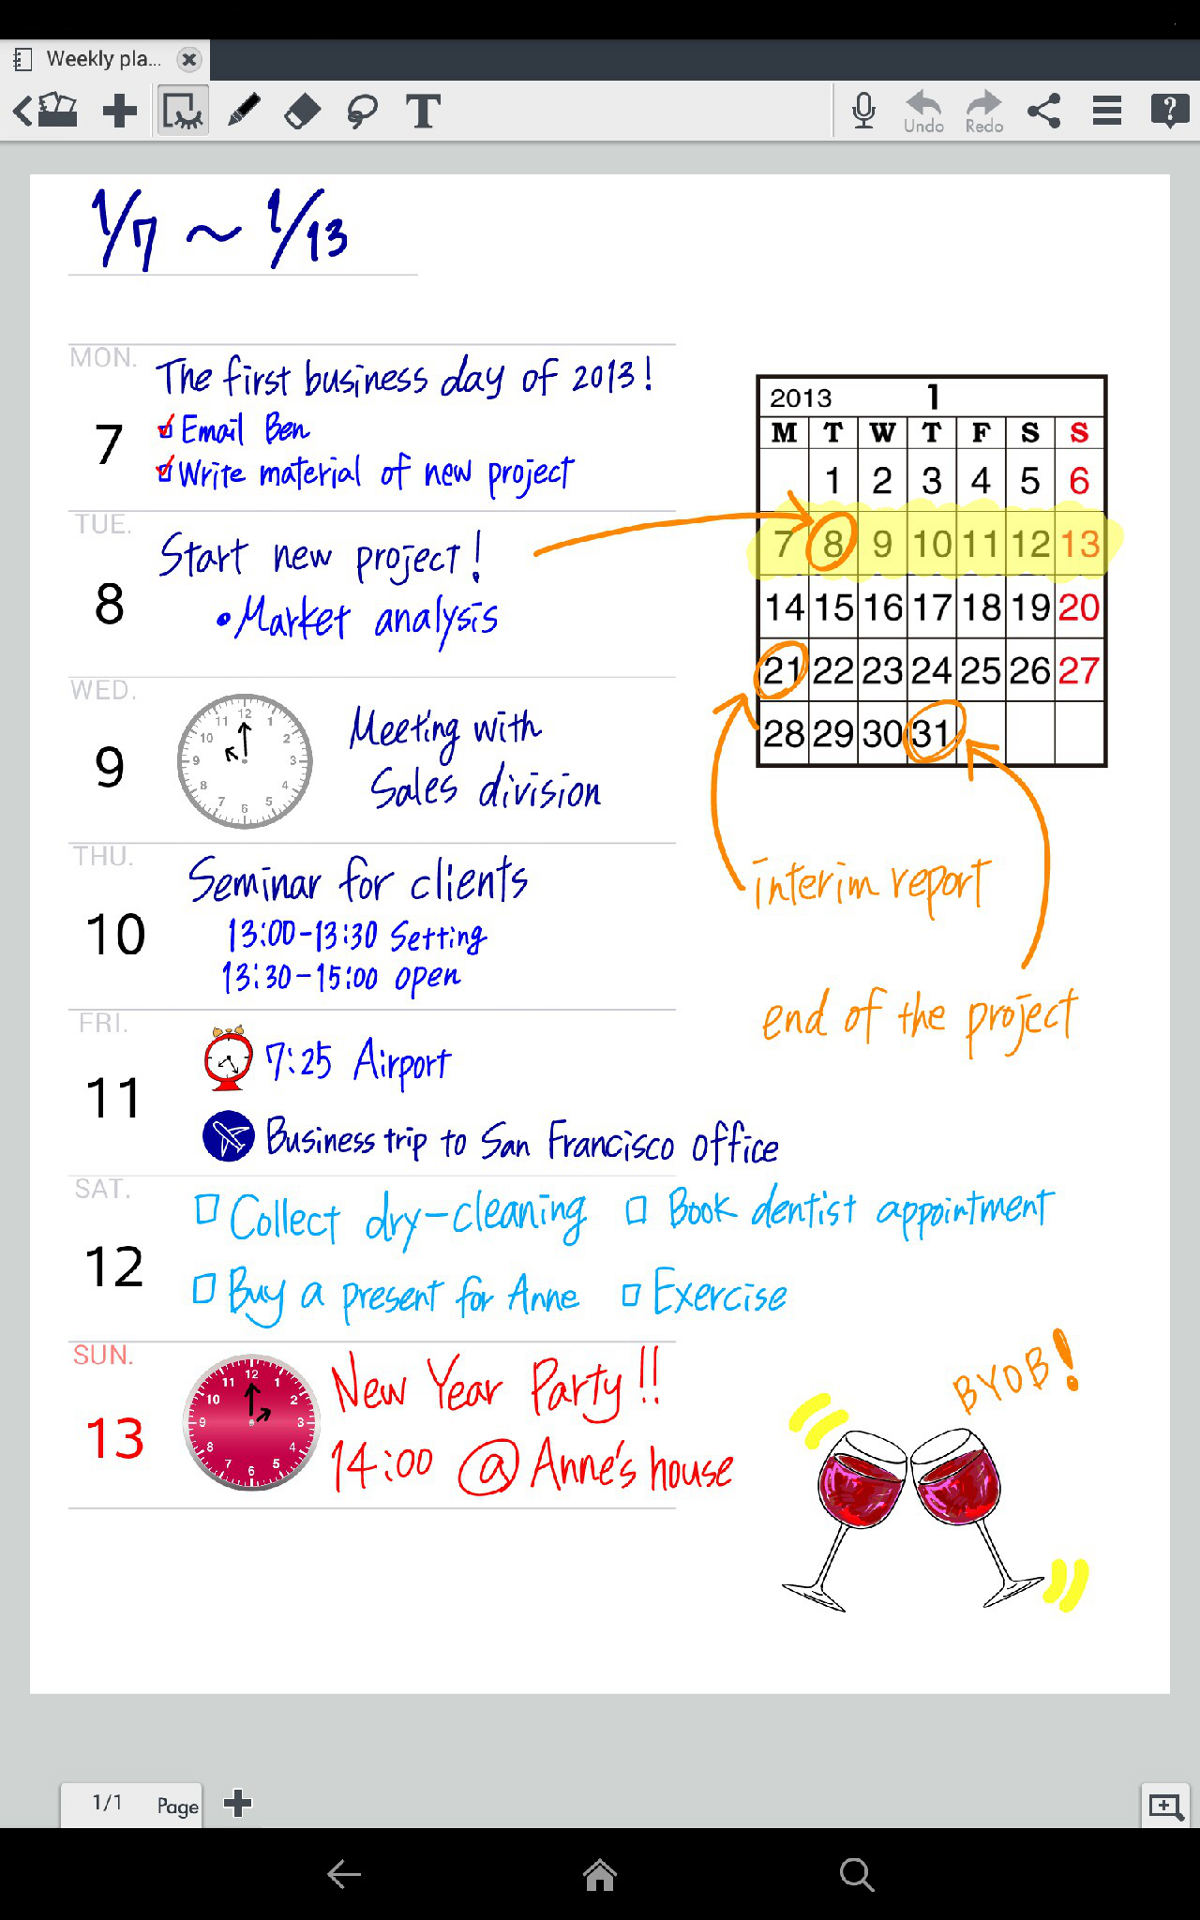 Weekly pla...
T
Undo
Redo
?
1/7 ~ 1/13
MON.
7
The first business day of 2013!
Email Ben
Write material of new project
TUE.
8
Start new project!
• Market analysis
WED.
9
12
1
2
3
4
5
6
7
8
9
10
11
Meeting with
Sales division
THU.
10
Seminar for clients
13:00-13:30 Setting
13:30-15:00 open
FRI.
11
7:25 Airport
Business trip to San Francisco office
SAT.
12
Collect dry-cleaning
Book dentist appointment
Buy a present for Anne
Exercise
SUN.
13
12
1
2
3
4
5
6
7
8
9
10
11
New Year Party!!
14:00 @ Anne's house
2013 1
M T W T F S S
1 2 3 4 5 6
7 8 9 10 11 12 13
14 15 16 17 18 19 20
21 22 23 24 25 26 27
28 29 30 31
interim report
end of the project
BYOB!
1/1 Page